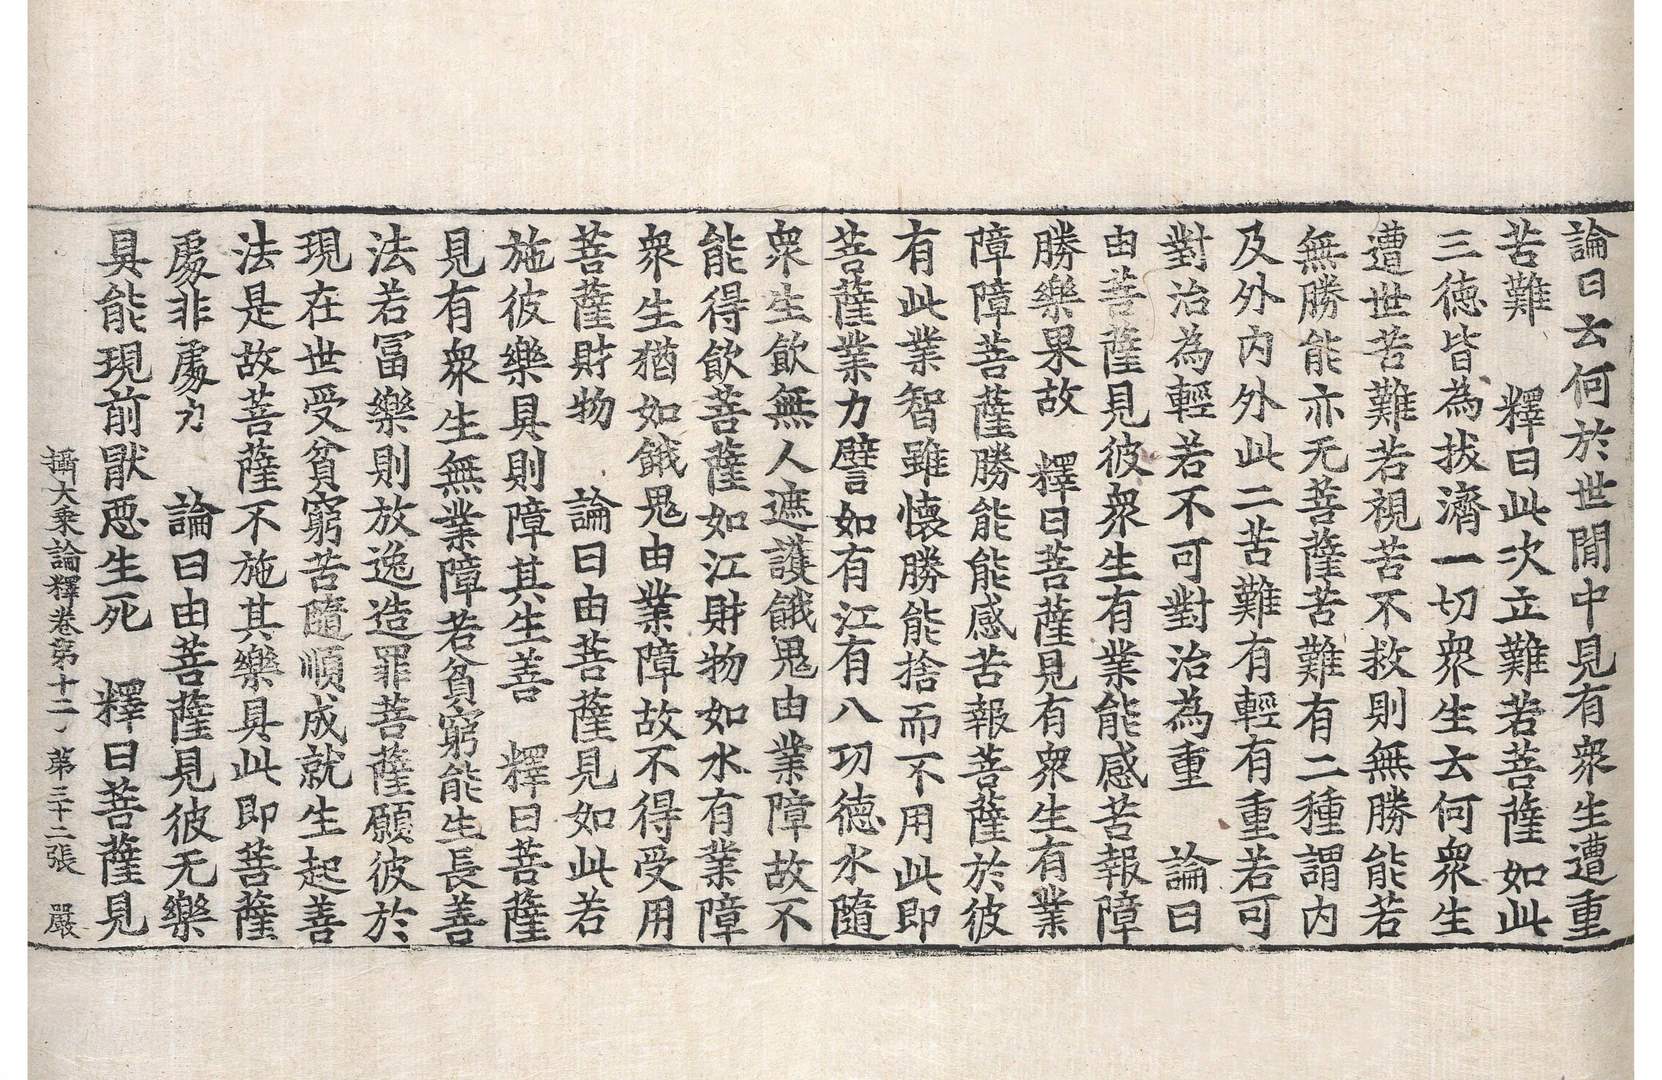 論曰云何於世閒中見有衆生遭重
苦難 釋曰此次立難若菩薩如此
三徳皆為拔濟一切衆生云何衆生
遭世苦難若視苦不救則無勝能若
無勝能亦无菩薩苦難有二種謂内
及外内外此二苦難有輕有重若可
對治為輕若不可對治為重 論曰
由菩薩見彼衆生有業能感苦報障
勝樂果故 釋曰菩薩見有衆生有業
障障菩薩勝能能感苦報菩薩於彼
有此業智雖懐勝能捨而不用此即
菩薩業力譬如有江有八功徳水隨
衆生飲無人遮護餓鬼由業障故不
能得飲菩薩如江財物如水有業障
衆生猶如餓鬼由業障故不得受用
菩薩財物 論曰由菩薩見如此若
施彼樂具則障其生善 釋曰菩薩
見有衆生無業障若貧窮能生長善
法若冨樂則放逸造罪菩薩願彼於
現在世受貧窮苦隨順成就生起善
法是故菩薩不施其樂具此即菩薩
處非處力 論曰由菩薩見彼无樂
具能現前猒惡生死 釋曰菩薩見
攝大乘論釋卷第十二 第三十二張 嚴